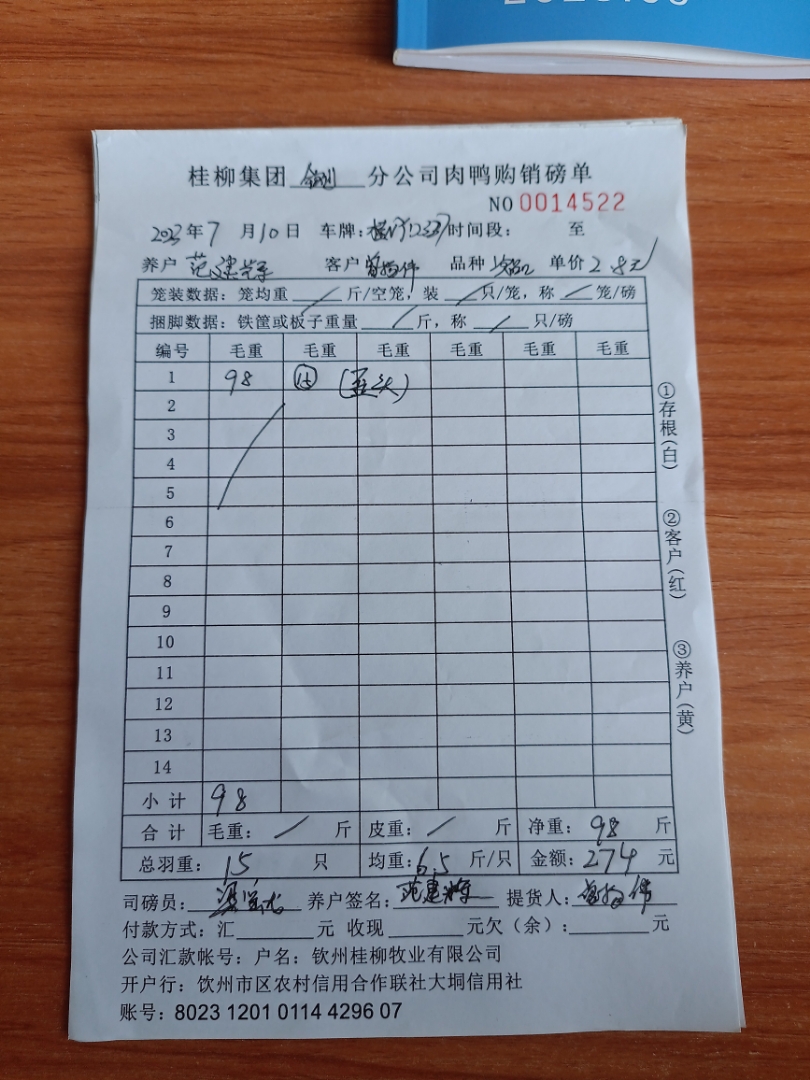 桂柳集团 分公司肉鸭购销磅单
NO 0014522
2023年7月10日 车牌: 时间段: 至
养户 范建辉 客户 曾扬伟 品种 单价 2.8元/
笼装数据: 笼均重 / 斤/空笼, 装 / 只/笼, 称 / 笼/磅
捆脚数据: 铁筐或板子重量 / 斤, 称 / 只/磅
编号 毛重 毛重 毛重 毛重 毛重 毛重
1 98 15 (歪头)
2
3
4
5
6
7
8
9
10
11
12
13
14
小计 98
合计 毛重: / 斤 皮重: / 斤 净重: 98 斤
总羽重: 15 只 均重: 6.5 斤/只 金额: 274 元
司磅员: 养户签名: 范建辉 提货人: 曾扬伟
付款方式: 汇 元 收现 元欠(余): 元
公司汇款帐号: 户名: 钦州桂柳牧业有限公司
开户行: 钦州市区农村信用合作联社大垌信用社
账号: 8023 1201 0114 4296 07
①存根(白)
②客户(红)
③养户(黄)